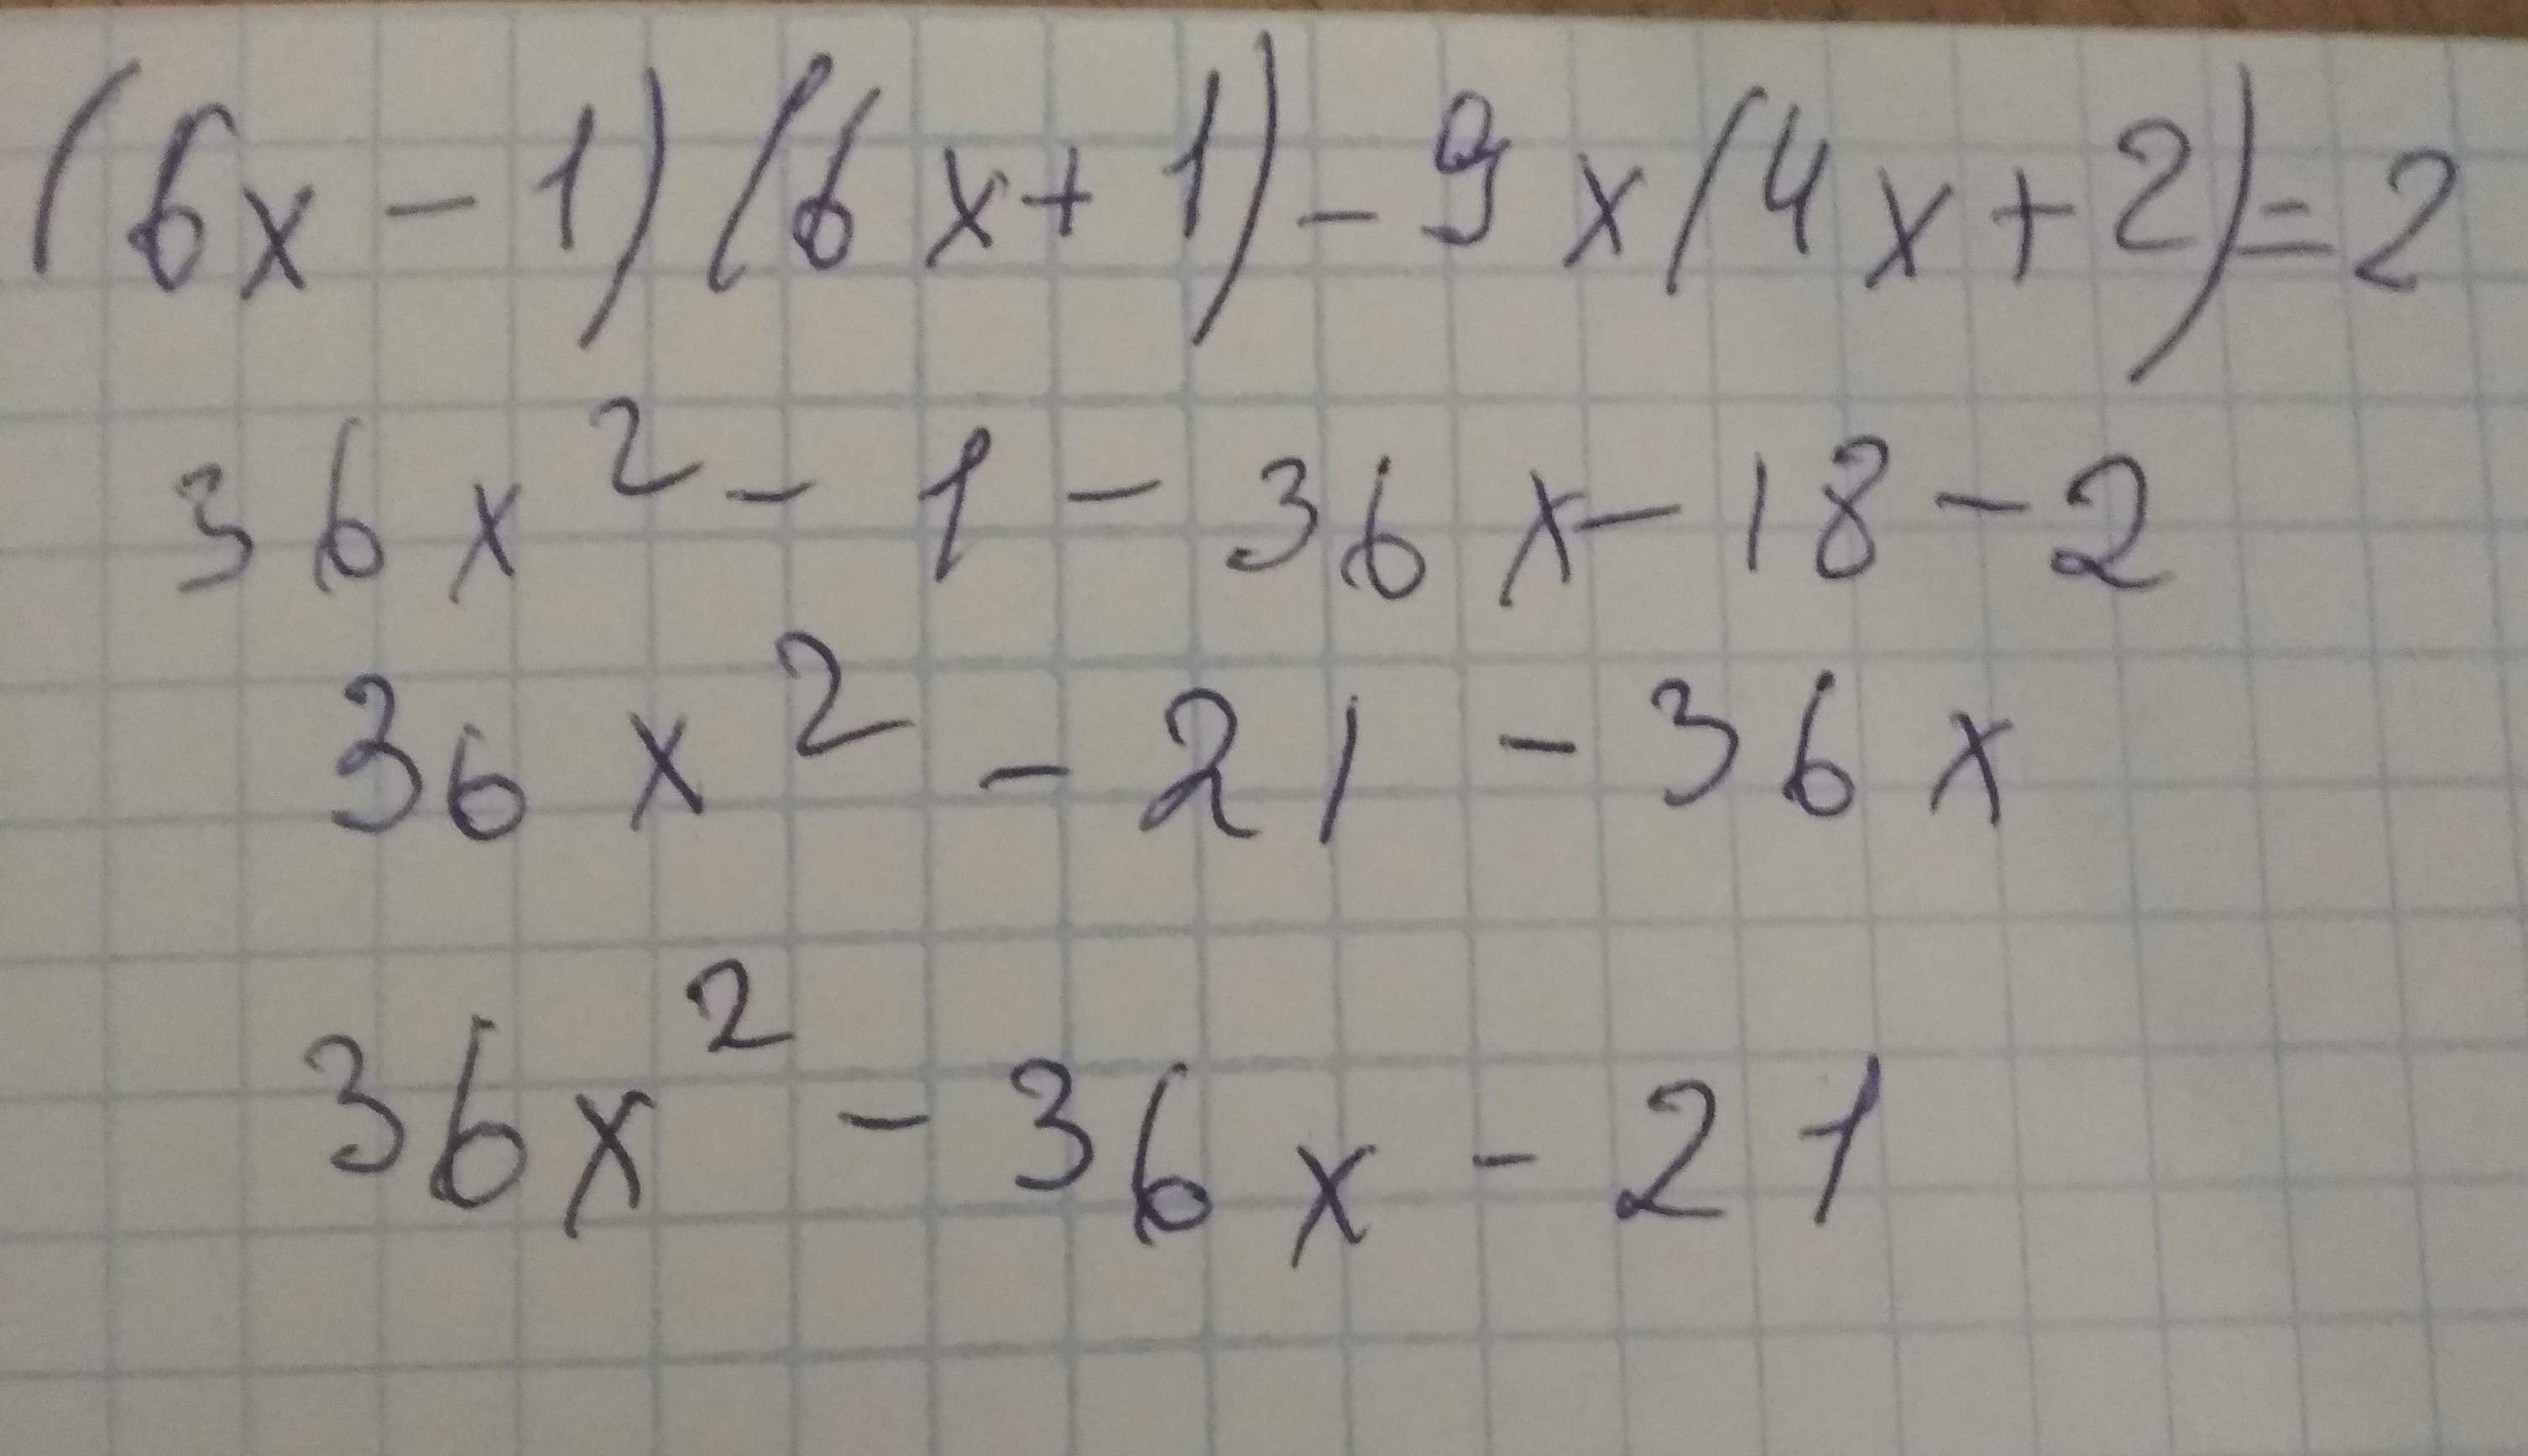 (6x - 1)(6x + 1) - 9x(4x + 2) = 2
36x² - 1 - 36x - 18 - 2
36x² - 21 - 36x
36x² - 36x - 21